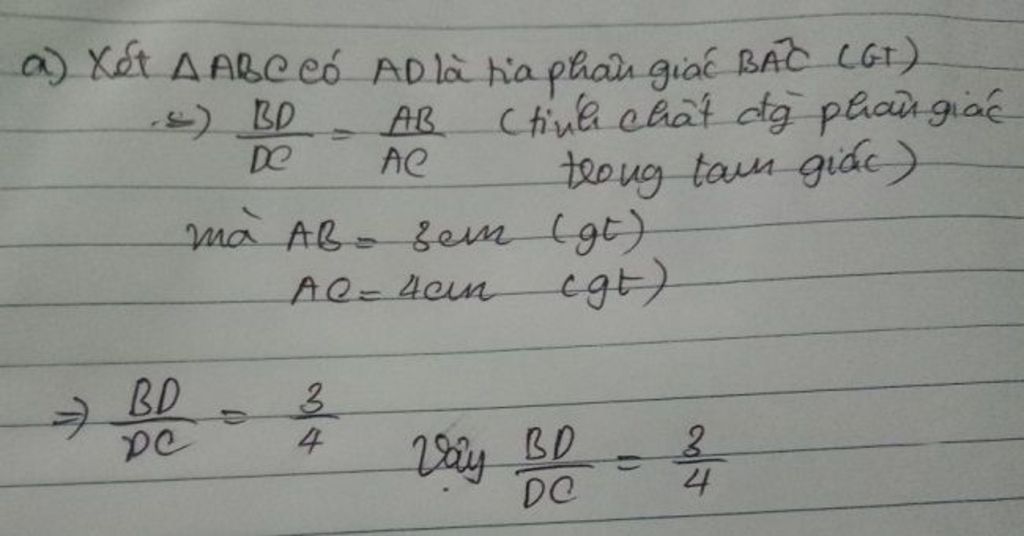 a) Xét △ABC có AD là tia phân giác BAC (GT)
=> BD/DC = AB/AC (tính chất đg phân giác
trong tam giác)
mà AB = 3cm (gt)
AC = 4cm (gt)
=> BD/DC = 3/4
Vậy BD/DC = 3/4